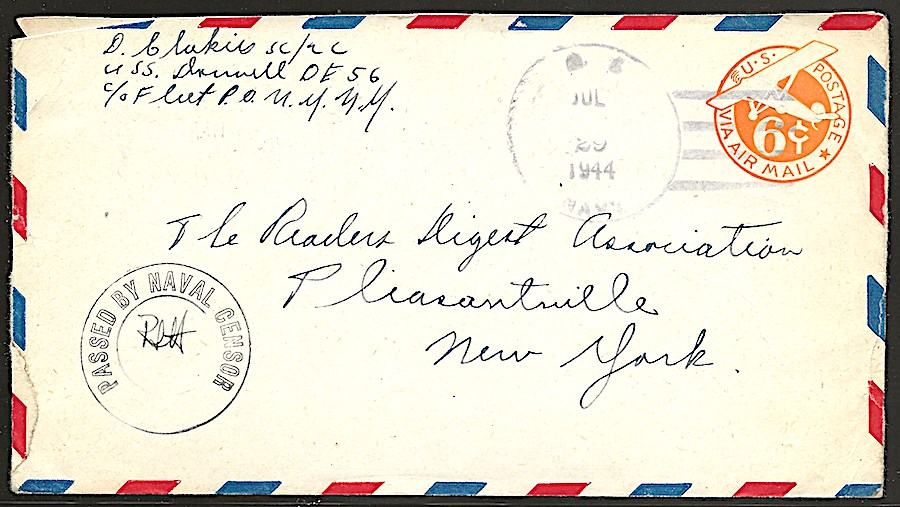 D. Clukies SC/2C
USS. Donnell DE 56
c/o Fleet P.O. N.Y. N.Y.
JUL
29
1944
NAVY
U.S. POSTAGE
6¢
VIA AIR MAIL
The Readers Digest Association
Pleasantville
New York.
PASSED BY NAVAL CENSOR